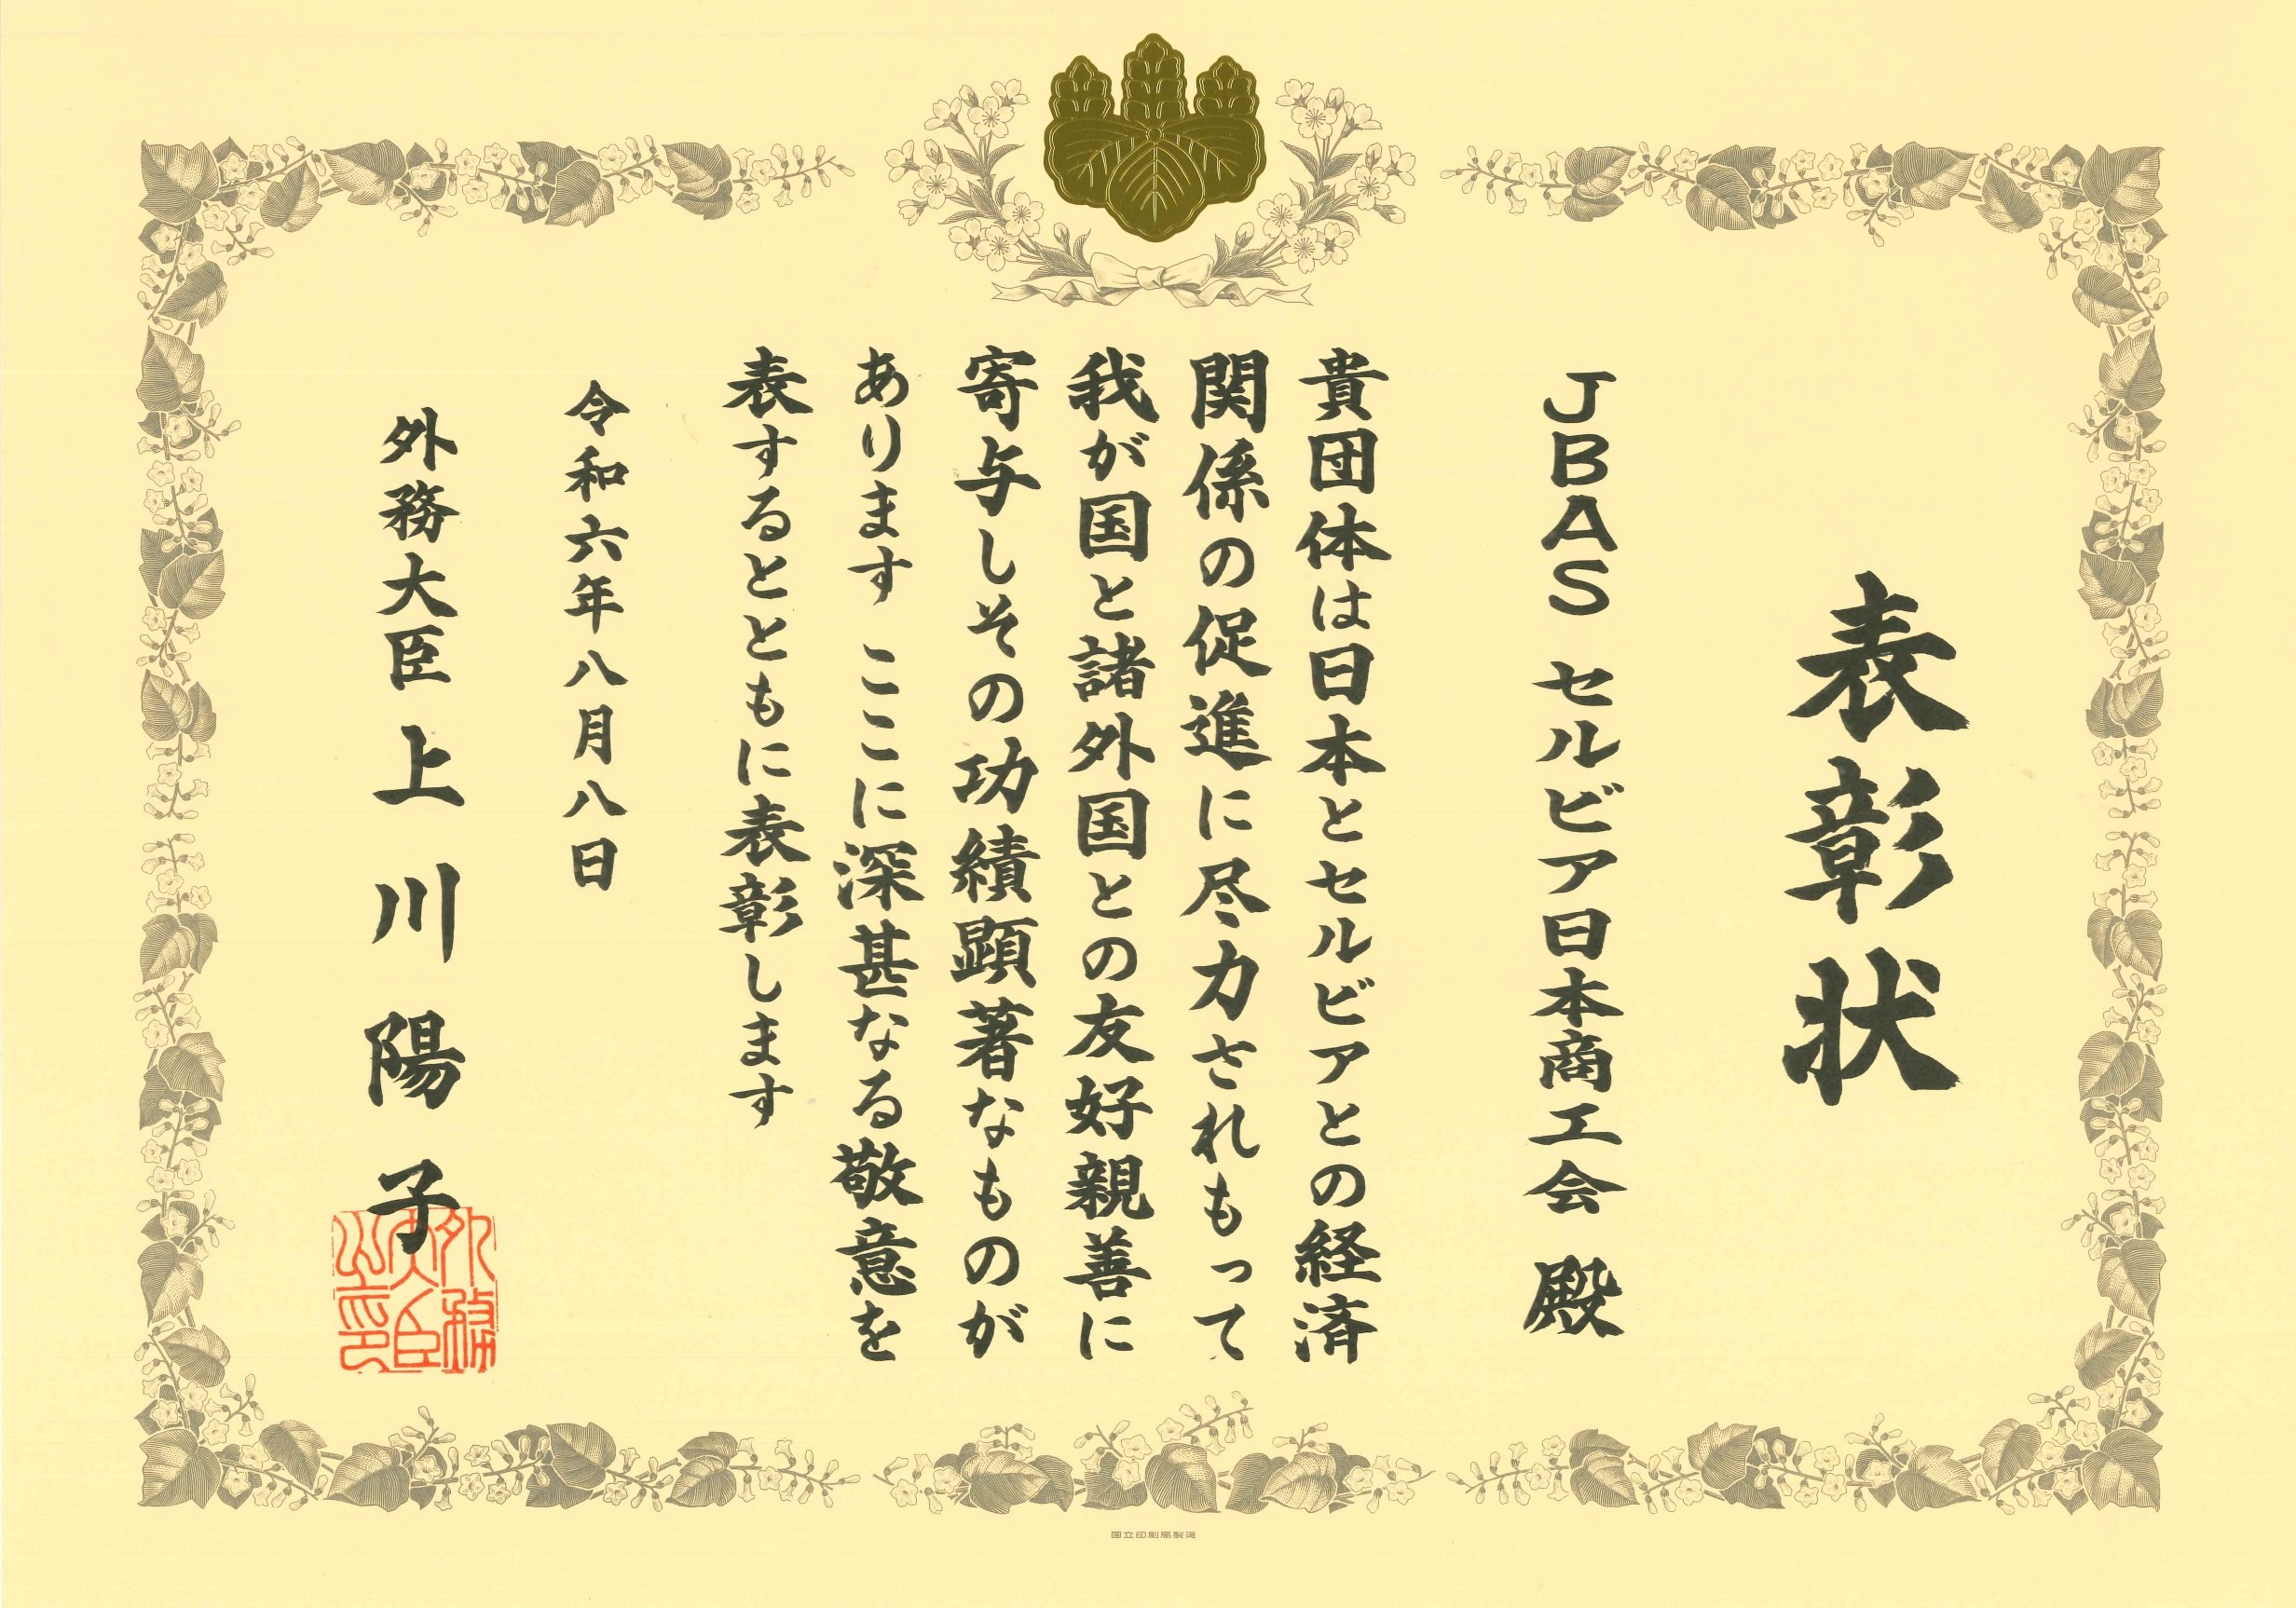 表彰状
JBAS セルビア日本商工会 殿
貴団体は日本とセルビアとの経済
関係の促進に尽力されもって
我が国と諸外国との友好親善に
寄与しその功績顕著なものが
あります ここに深甚なる敬意を
表するとともに表彰します
令和六年八月八日
外務大臣 上川陽子
外務
大臣
之印
国立印刷局製造